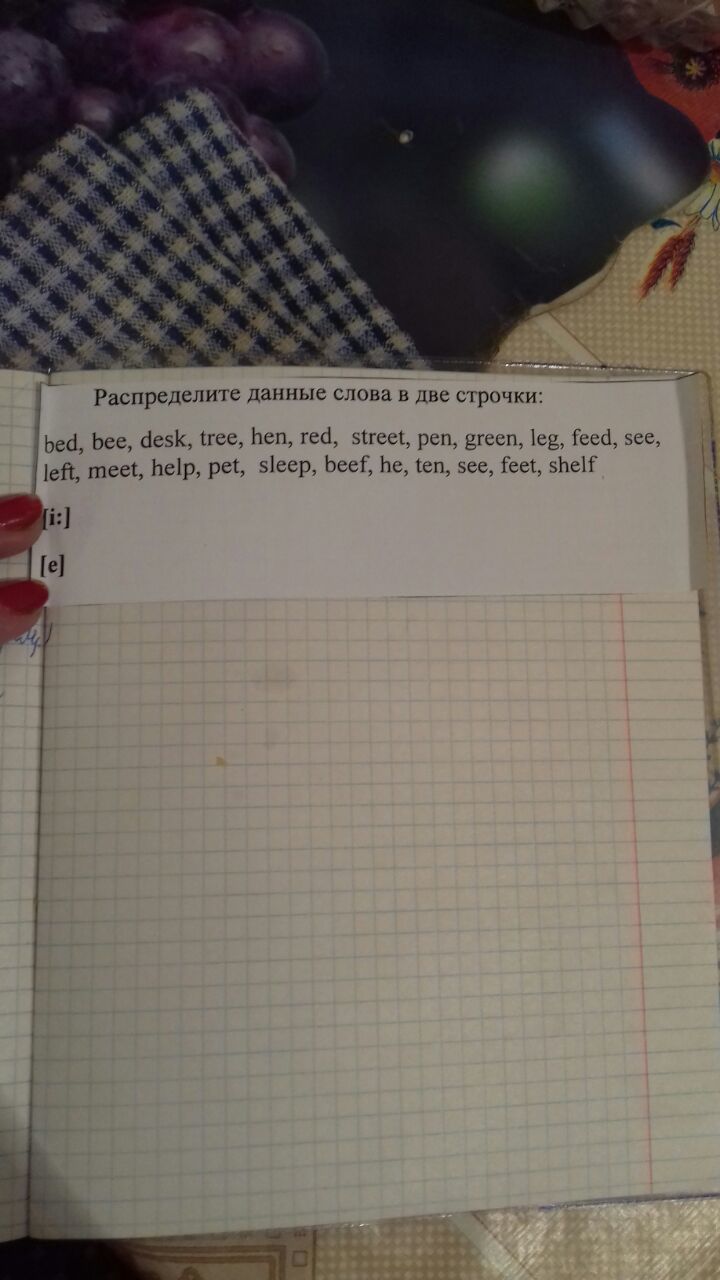 Распределите данные слова в две строчки:
bed, bee, desk, tree, hen, red, street, pen, green, leg, feed, see,
left, meet, help, pet, sleep, beef, he, ten, see, feet, shelf
[i:]
[e]